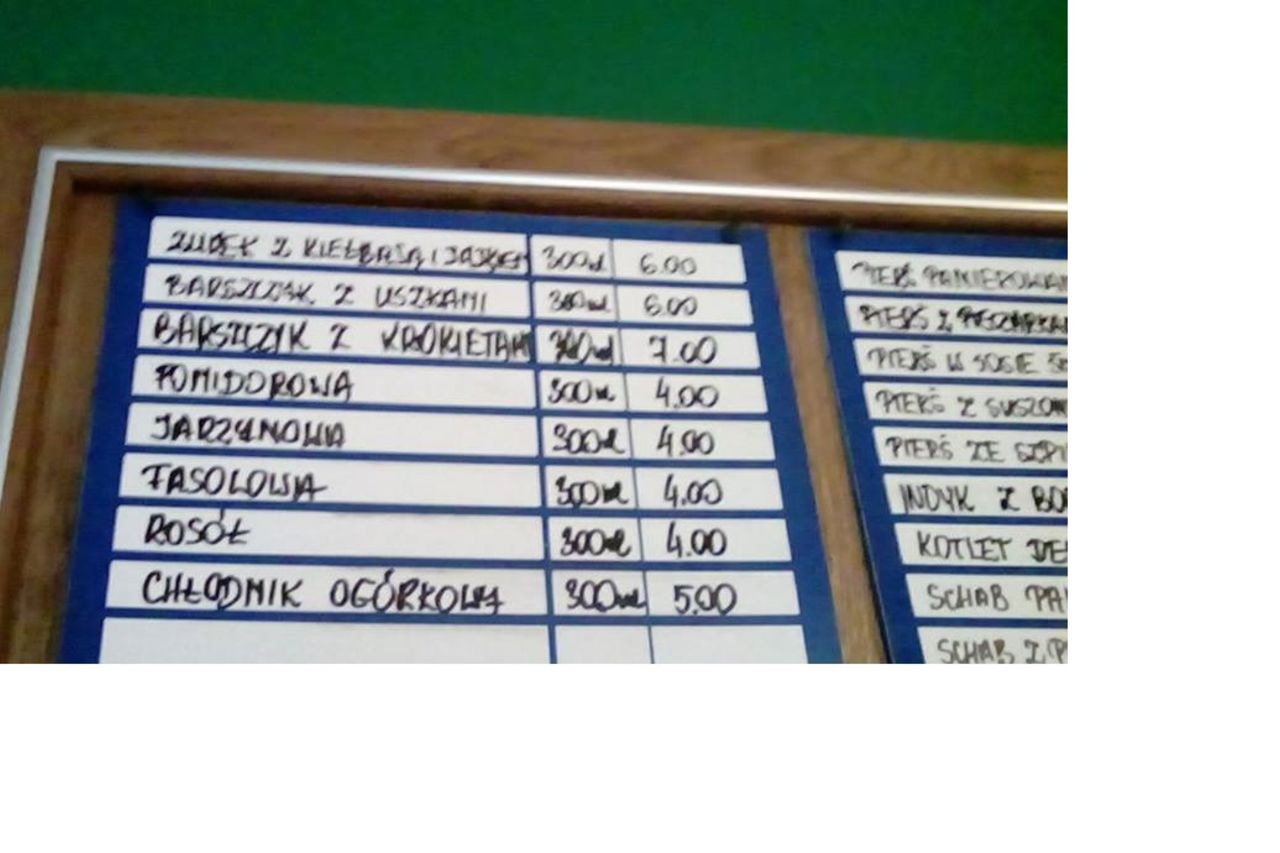 ŻUREK Z KIEŁBASĄ I JAJKIEM 300ml 6.00
BARSZCZYK Z USZKAMI 300ml 6.00
BARSZCZYK Z KROKIETAM 300ml 7.00
POMIDOROWA 300ml 4.00
JARZYNOWA 300ml 4.00
FASOLOWA 300ml 4.00
ROSÓŁ 300ml 4.00
CHŁODNIK OGÓRKOWY 300ml 5.00
PIERŚ PANIEROWAN
PIERŚ Z PIECZARKA
PIERŚ W SOSIE
PIERŚ Z SUSZON
PIERŚ ZE SZPI
INDYK Z BO
KOTLET DE
SCHAB PA
SCHAB Z